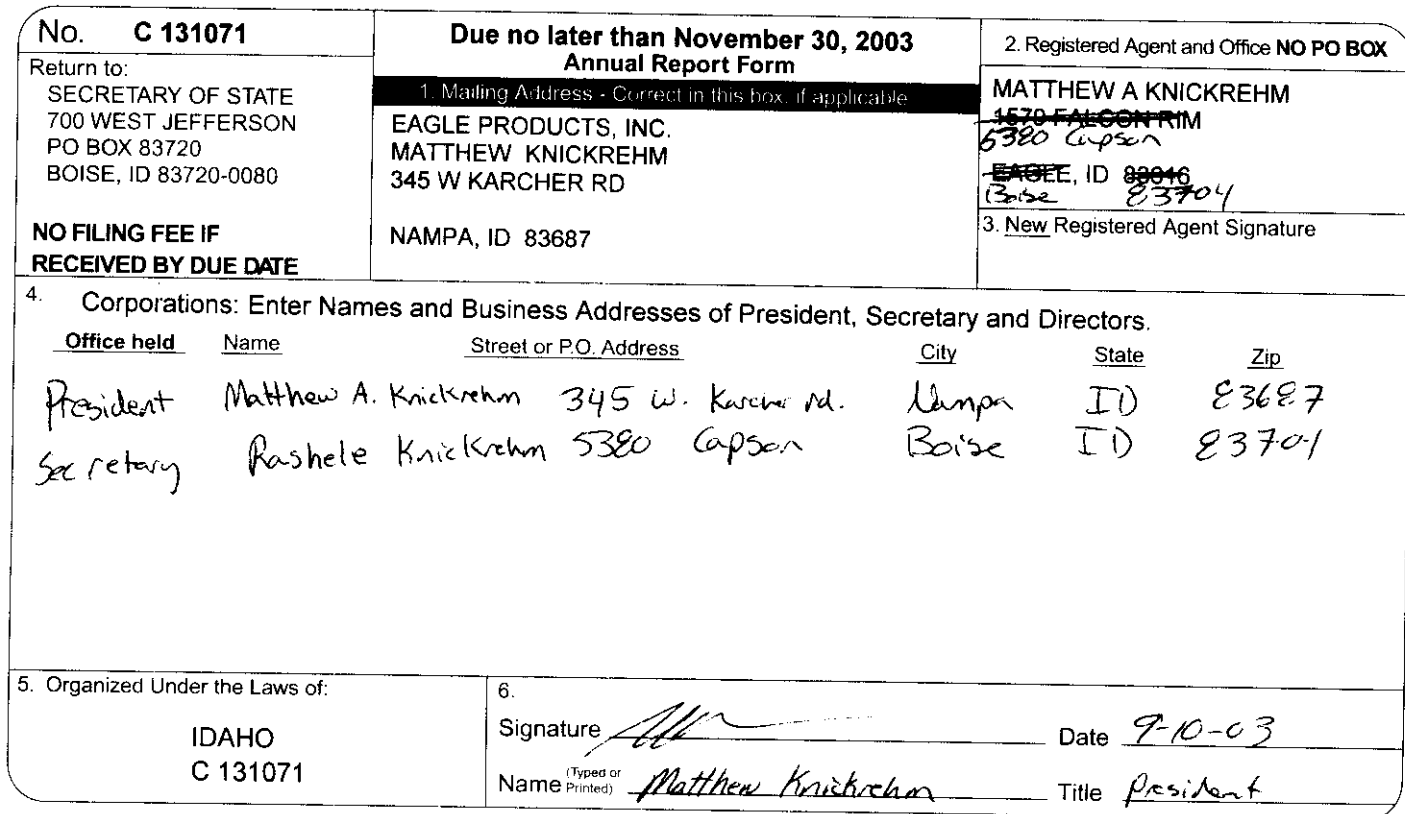 No. C 131071
Return to:
SECRETARY OF STATE
700 WEST JEFFERSON
PO BOX 83720
BOISE, ID 83720-0080
NO FILING FEE IF
RECEIVED BY DUE DATE
Due no later than November 30, 2003
Annual Report Form
1. Mailing Address - Correct in this box, if applicable
EAGLE PRODUCTS, INC.
MATTHEW KNICKREHM
345 W KARCHER RD
NAMPA, ID 83687
2. Registered Agent and Office NO PO BOX
MATTHEW A KNICKREHM
1570 FALCON RIM
5380 Capson
EAGLE, ID 83616
Boise 83704
3. New Registered Agent Signature
4. Corporations: Enter Names and Business Addresses of President, Secretary and Directors.
Office held Name Street or P.O. Address City State Zip
President Matthew A. Knickrehm 345 W. Karcher rd. Nampa ID 83687
Secretary Rashele Knickrehm 5380 Capson Boise ID 83704
5. Organized Under the Laws of:
IDAHO
C 131071
6.
Signature Date 9-10-03
Name (Typed or Printed) Matthew Knickrehm Title President